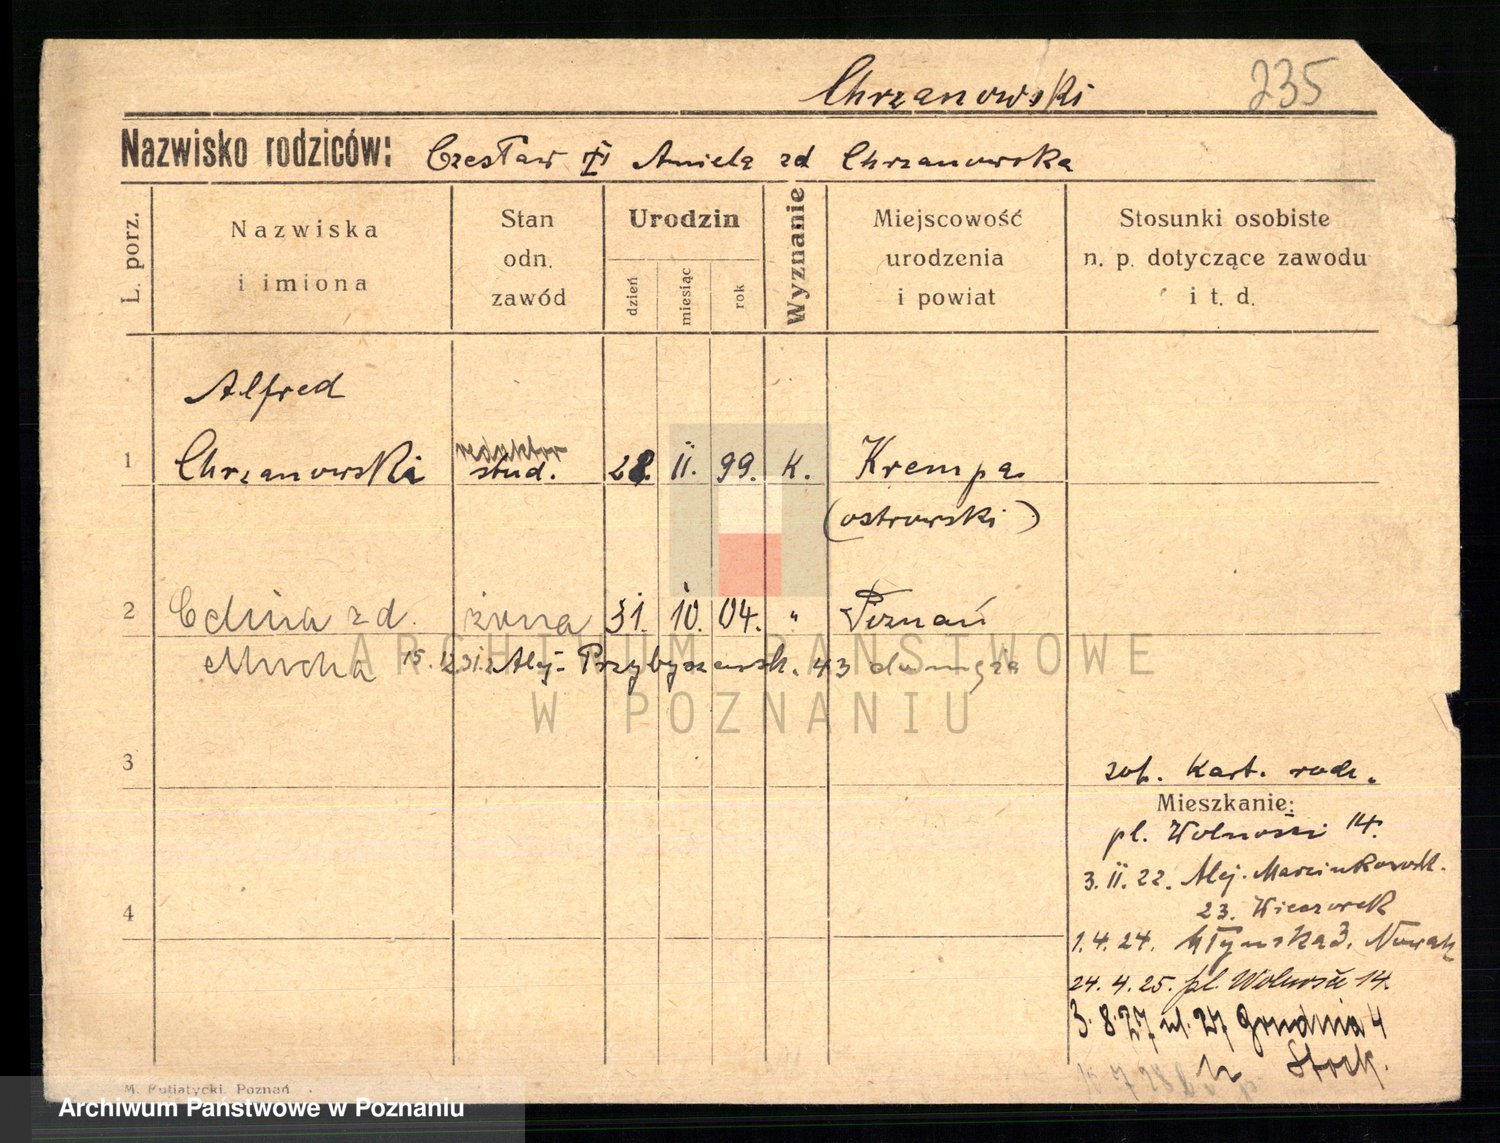 Chrzanowski 235
Nazwisko rodziców: Czesław i Aniela zd Chrzanowska
L. porz.
Nazwiska
i imiona
Stan
odn.
zawód
Urodzin
dzień
miesiąc
rok
Wyznanie
Miejscowość
urodzenia
i powiat
Stosunki osobiste
n. p. dotyczące zawodu
i t. d.
Alfred
redaktor
1 Chrzanowski stud. 28. II. 99. K. Krempa
(ostrowski)
2 zd. żona 31. 10. 04. " Poznań
Mucha 15.12.31. Alej. Przybyszewsk. 43
3
zob. Kart. rodz.
Mieszkanie:
pl. Wolności 14.
3. II. 22. Alej. Marcinkowsk.
4
23. Wieczorek
1. 4. 24. Młyńska 3. Nowak
24. 4. 25. pl. Wolności 14.
3. 8. 27 ul. 27 Grudnia 4
u Stock.
M. Putiatycki, Poznań
ARCHIWUM PAŃSTWOWE
W POZNANIU
Archiwum Państwowe w Poznaniu